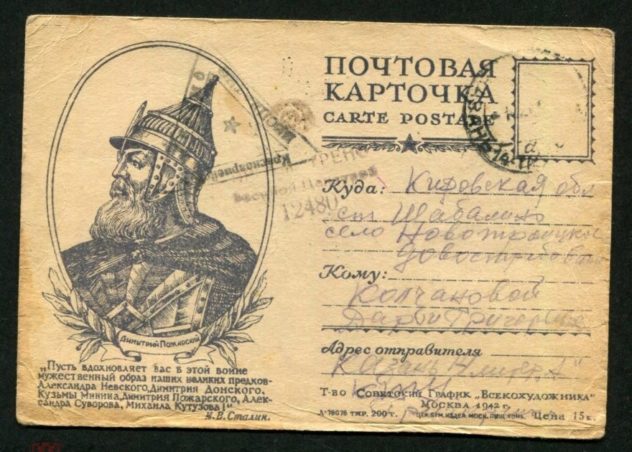 ПОЧТОВАЯ
КАРТОЧКА
CARTE POSTALE
КАЗАНЬ
Красноармейское
12480
Куда: Кировская обл
ст Шабалино
село Новотроицкое
Кому:
Колчановой
Дарьи Григорьевне
Адрес отправителя
Казань
Димитрий Пожарский
„Пусть вдохновляет вас в этой войне
мужественный образ наших великих предков-
Александра Невского, Димитрия Донского,
Кузьмы Минина, Димитрия Пожарского, Алек-
сандра Суворова, Михаила Кутузова!“
И. В. Сталин.
Т-во Советский График „Всекохудожника“
Москва 1942 г.
Тир. 200 т.
Цена 15 к.